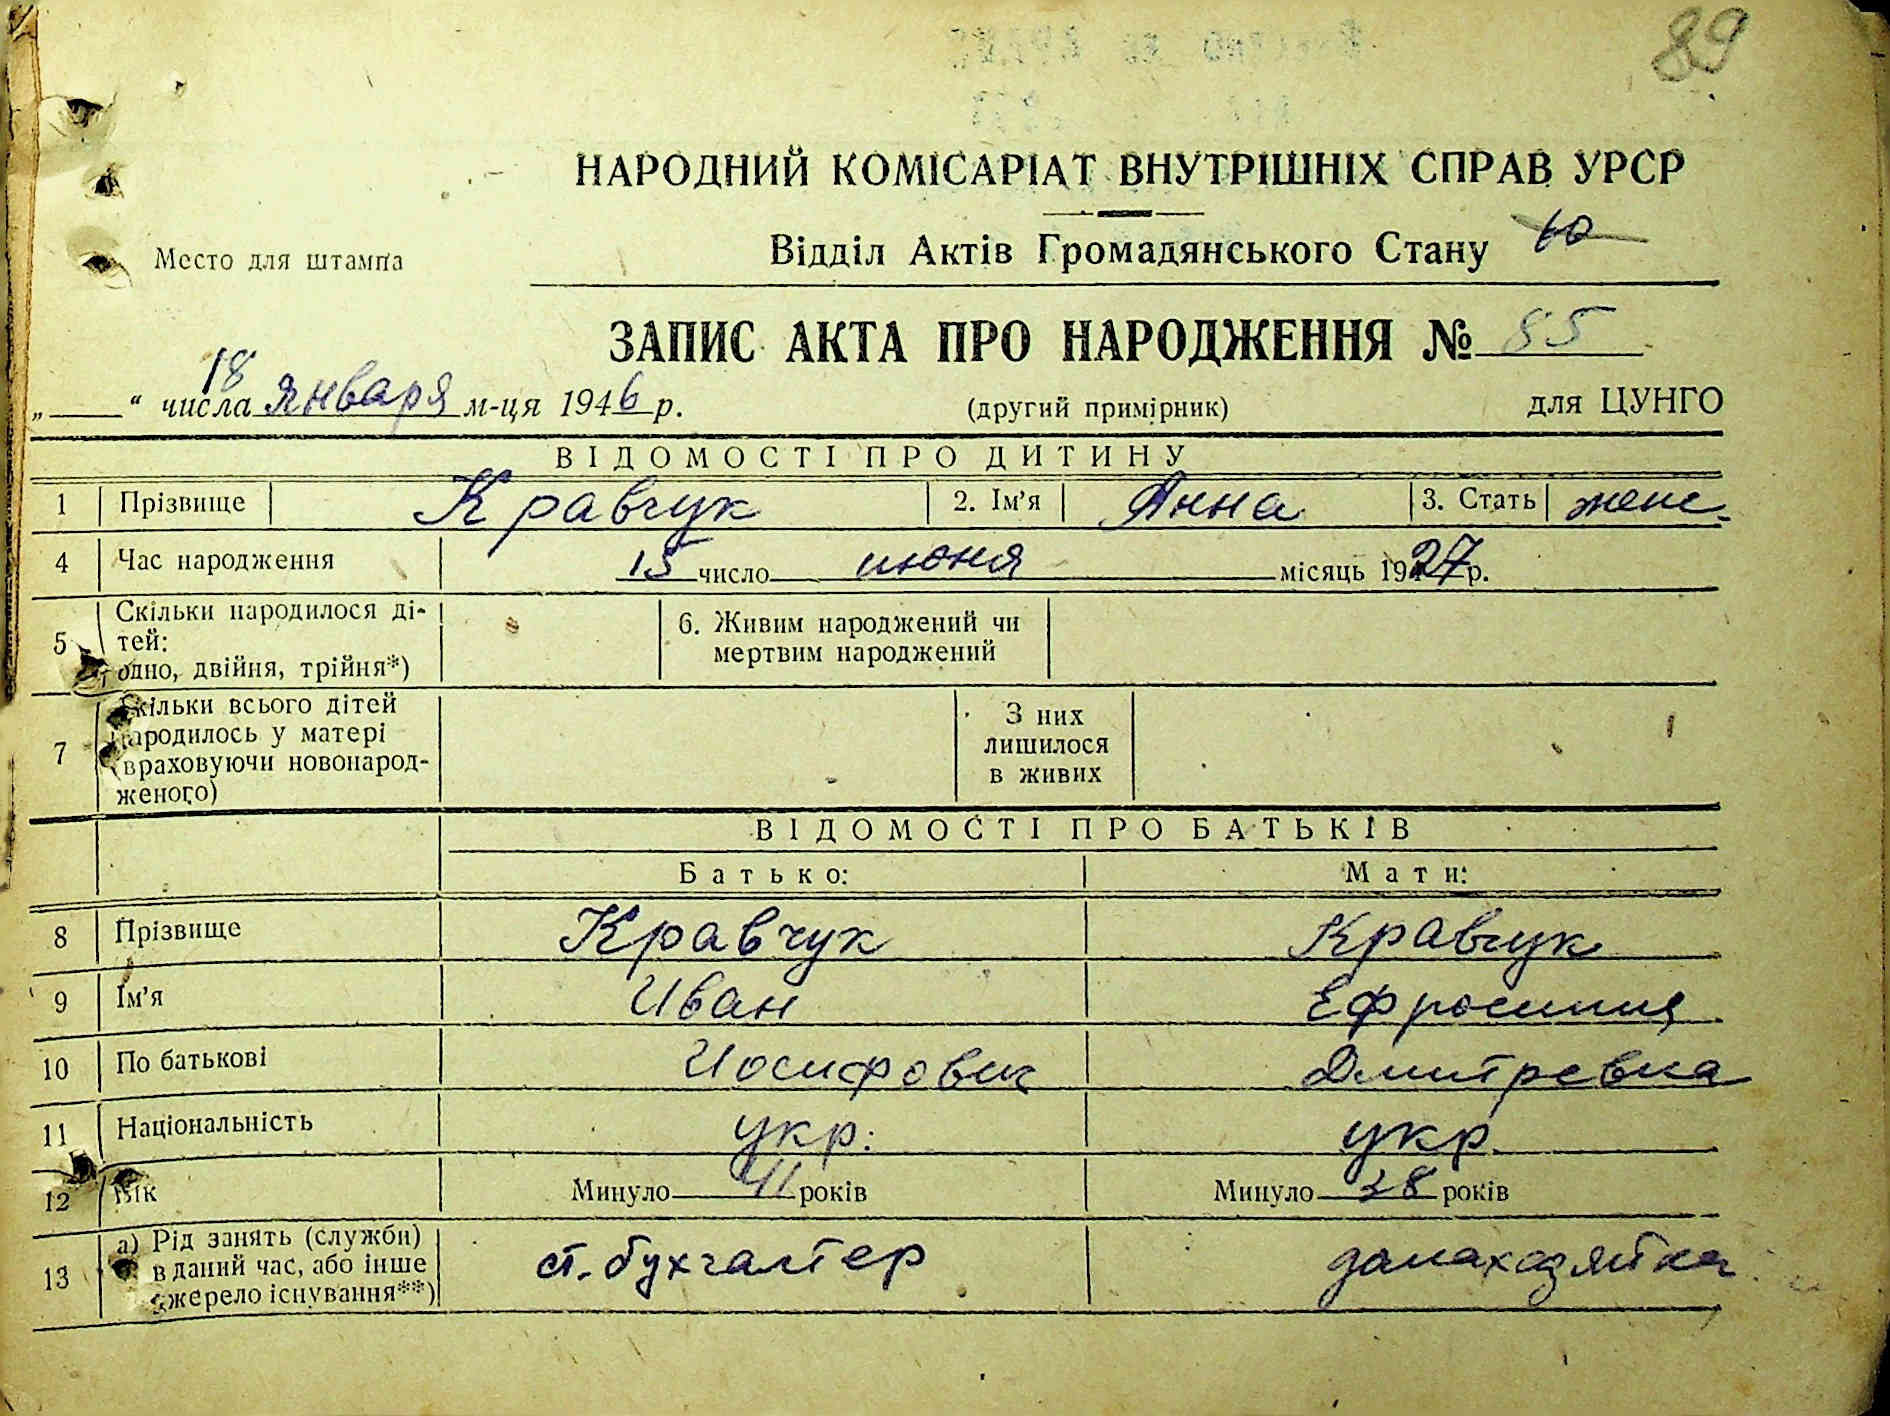 89
НАРОДНИЙ КОМІСАРІАТ ВНУТРІШНІХ СПРАВ УРСР
Место для штампа
Відділ Актів Громадянського Стану
ЗАПИС АКТА ПРО НАРОДЖЕННЯ № 85
„ “ 18 числа января м-ця 1946 р. (другий примірник) для ЦУНГО
ВІДОМОСТІ ПРО ДИТИНУ
1 Прізвище Кравчук 2. Ім'я Анна 3. Стать женс.
4 Час народження 15 число июня місяць 1927 р.
5 Скільки народилося ді-
тей:
одно, двійня, трійня*)
6. Живим народжений чи
мертвим народжений
7 Скільки всього дітей
народилось у матері
(враховуючи новонарод-
женого)
З них
лишилося
в живих
ВІДОМОСТІ ПРО БАТЬКІВ
Батько: Мати:
8 Прізвище Кравчук Кравчук
9 Ім'я Иван Ефросиния
10 По батькові Иосифович Дмитревна
11 Національність укр. укр.
12 Вік Минуло 41 років Минуло 38 років
13 а) Рід занять (служби)
в даний час, або інше
джерело існування**)
ст. бухгалтер домахозяйка